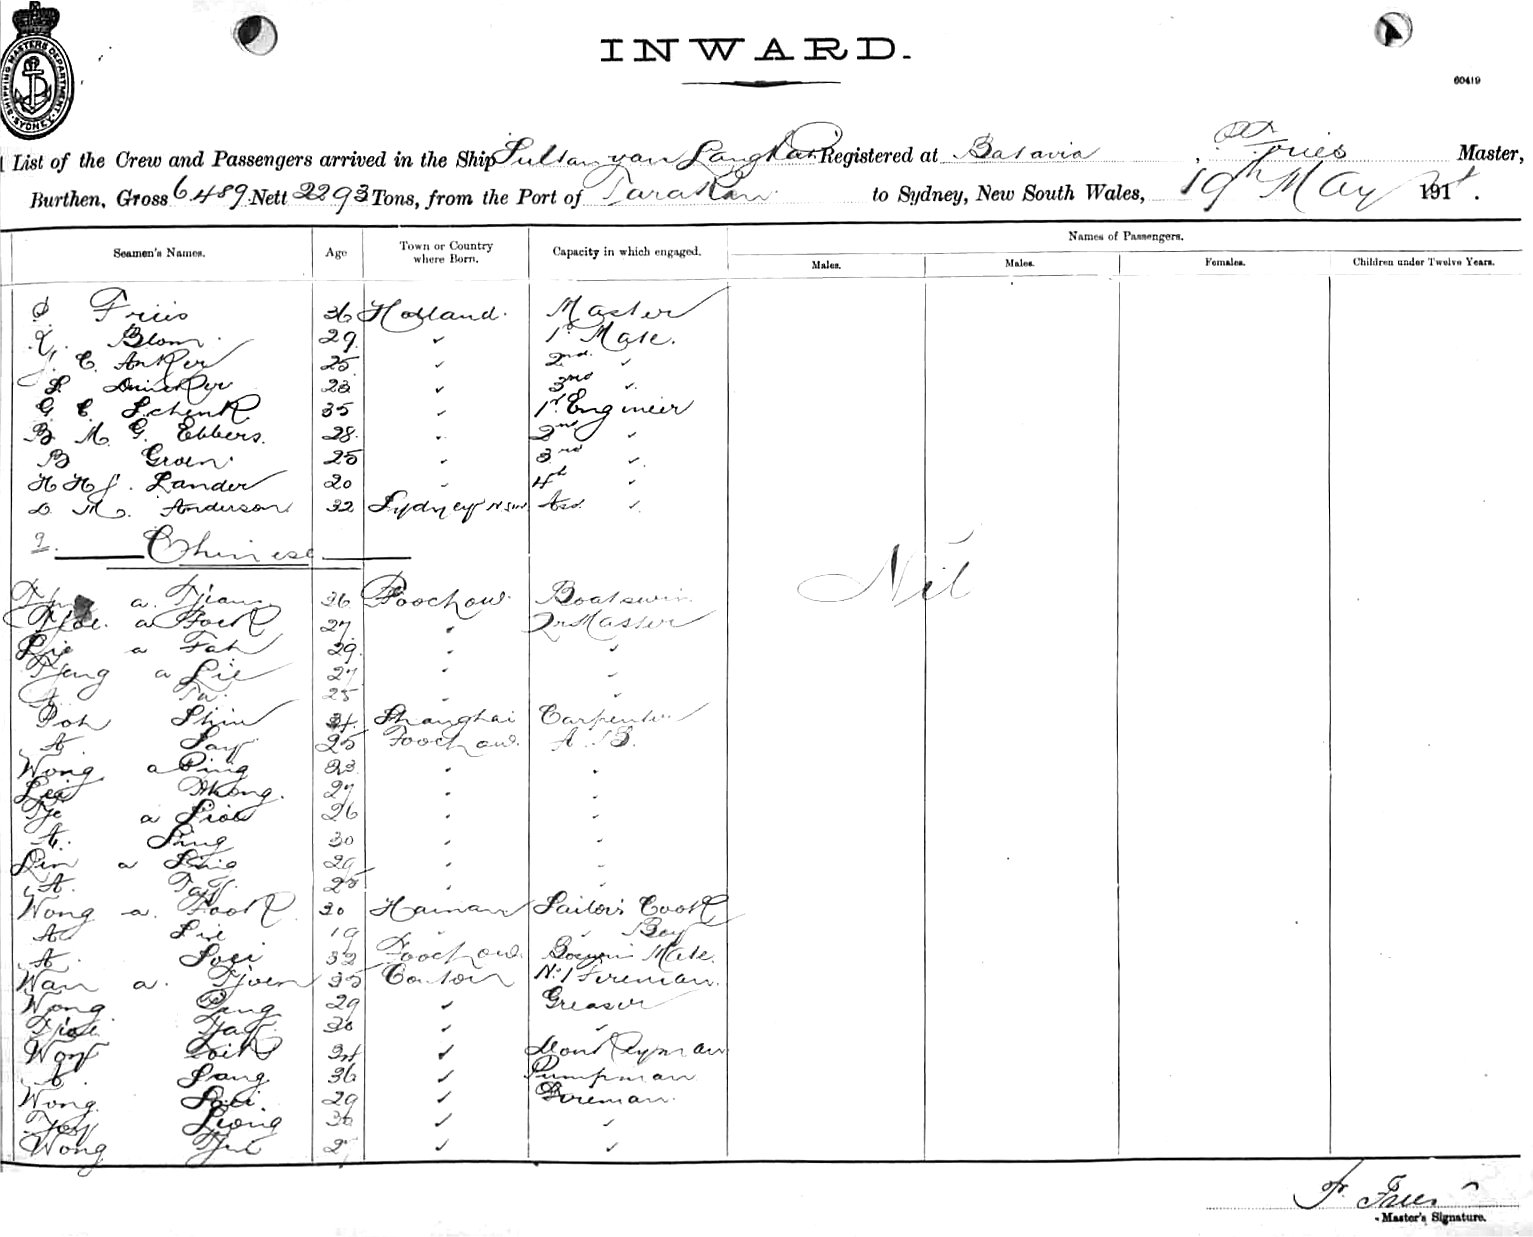 SHIPPING MASTERS DEPARTMENT SYDNEY
INWARD.
60419
List of the Crew and Passengers arrived in the Ship Sultan van Langkat Registered at Batavia, Fries Master,
Burthen, Gross 6489 Nett 2293 Tons, from the Port of Tarakan to Sydney, New South Wales, 19th May 191 .
Seamen's Names. Age Town or Country where Born. Capacity in which engaged. Names of Passengers.
Males. Males. Females. Children under Twelve Years.
Friis 36 Holland. Master
Blom 29 " 1st Mate.
J. C. Anker 25 " 2nd "
23 " 3rd "
G C Schenk 35 " 1st Engineer
B M G. Ebbers. 28 " 2nd "
B Groen. 25 " 3rd "
H H J. Lander 20 " 4th "
D M. Anderson 32 Sydney NSW Ass. "
9. Chinese
Nil
a. Tjiang 26 Foochow. Boatswin
a Fock 27 " Qr Master
Lie a Fah 29 " "
Tjeng a Lie 27 " "
A Ta. 25 " "
Poh Shin 34. Shanghai Carpenter
A. Say 25 Foochow. A. B.
Wong a Ping 23 " "
Lee 27 " "
Tje a Siou 26 " "
A. Sing 30 " "
Lim a 29 " "
A. 25 " "
Wong a. Fook 30 Hainan Sailors Cook
A Lie 19 " " Boy
A. Soei 32 Foochow. Boswin Mate.
Wan a. Tjoen 35 Canton No 1 Fireman.
Wong 29 " Greaser
30 " "
34 " Donkeyman
A. Sang 36 " Pumpman
Wong 29 " Fireman.
Leong 36 " "
Wong 2 " "
Fr. Fries
Master's Signature.